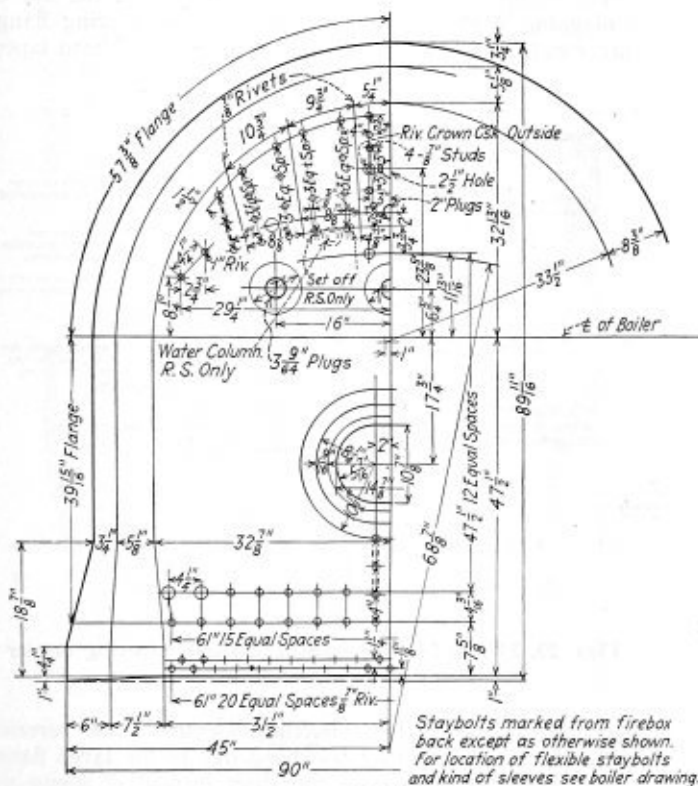 57 3/8" Flange
7/8" Rivets
5 1/4"
9 3/4"
10 3/4"
3 1/4"
5 1/8"
Riv. Crown Csk. Outside
4-7/8" Studs
2 1/2" Hole
2" Plugs
32 13/16"
8 3/8"
33 1/2"
1" Riv.
2 3/4"
29 1/4"
8"
Set off
R.S. Only
16"
6 3/4"
11 13/16"
℄ of Boiler
Water Column
R.S. Only
3 9/64" Plugs
1"
17 3/4"
39 15/16" Flange
2"
10 7/8"
68 7/16"
47 1/2" 12 Equal Spaces
47 1/2"
89 11/16"
3 1/4"
5 1/8"
32 7/8"
18 7/8"
4 1/4"
61" 15 Equal Spaces
7 5/8"
4 1/4"
1"
61" 20 Equal Spaces 7/8" Riv.
1"
6"
7 1/2"
31 1/2"
45"
90"
Staybolts marked from firebox
back except as otherwise shown.
For location of flexible staybolts
and kind of sleeves see boiler drawing.